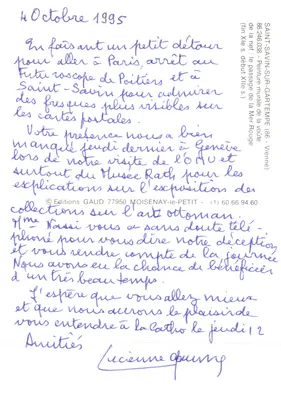 4 Octobre 1995
En faisant un petit détour
pour aller à Paris, arrêt au
Futuroscope de Poitiers et à
Saint-Savin pour admirer
des fresques plus visibles sur
les cartes postales.
Votre présence nous a bien
manqué jeudi dernier à Genève
lors de notre visite de l'ONU et
surtout du Musée Rath pour les
explications sur l'exposition des
collections sur l'art ottoman.
Mme a sans doute télé-
phoné pour vous dire notre déception
et vous rendre compte de la journée
Nous avons eu la chance de bénéficier
d'un très beau temps.
J'espère que vous allez mieux
et que nous aurons le plaisir de
vous entendre à la Catho le jeudi 12
Amitiés
Lucienne
SAINT-SAVIN-SUR-GARTEMPE (86 - Vienne)
86.246.036 - Peinture murale de la voûte
de la nef : le passage de la Mer Rouge
(fin XIe s. début XIIe s.)
© Editions GAUD 77950 MOISENAY-le-PETIT - (1) 60.66.94.60